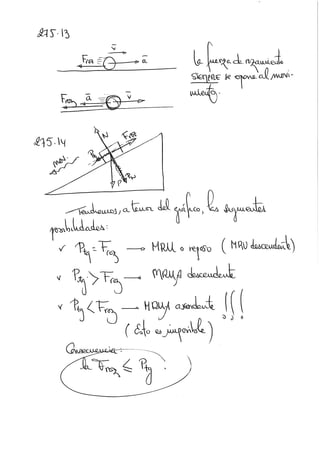 275.13
v
Froz a
La fuerza de rozamiento
SIEMPRE se opone al movi-
miento.
Froz a v
275.14
N Froz
Mov.
P PN
Tendremos, a tenor del gráfico, las siguientes
posibilidades:
✓ Ptg = Froz → MRU o reposo (MRU descendente)
✓ Ptg > Froz → MRUA descendente
✓ Ptg < Froz → MRUA ascendente !!!
(Esto es imposible)
Consecuencia:
la Froz ≤ Ptg.